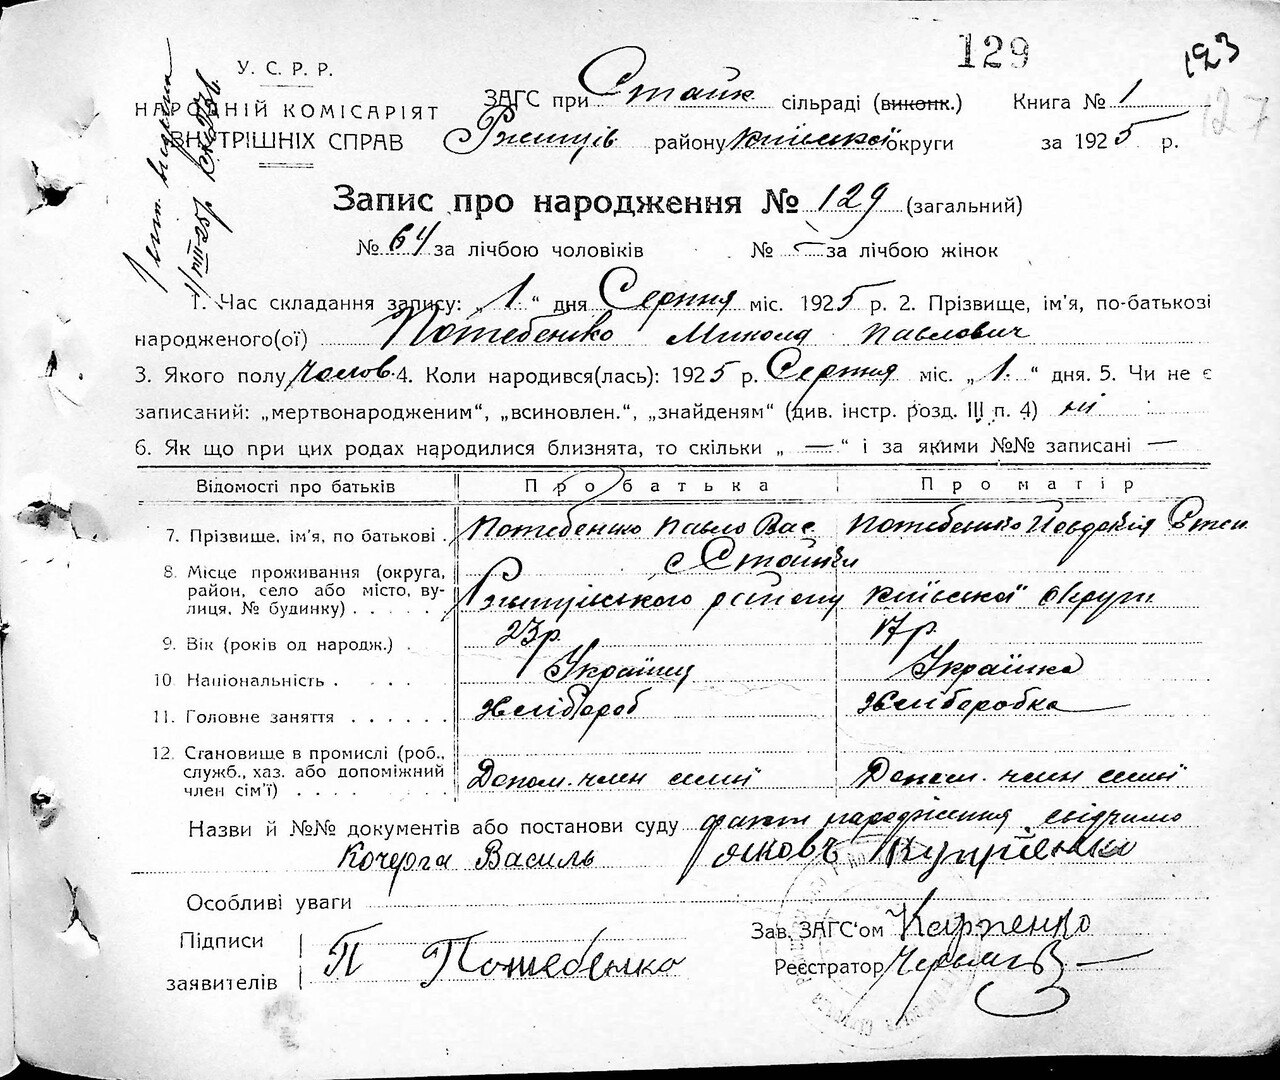 129
123
127
У. С. Р. Р.
НАРОДНІЙ КОМІСАРІЯТ
ВНУТРІШНІХ СПРАВ
ЗАГС при Стайк сільраді (виконк.) Книга № 1
Ржищів району Київської округи за 1925 р.
Запис про народження № 129 (загальний)
№ 64 за лічбою чоловіків № – за лічбою жінок
1. Час складання запису: „1“ дня Серпня міс. 1925 р. 2. Прізвище, ім'я, по-батькові
народженого(ої) Потебенько Микола Павлович
3. Якого полу чолов. 4. Коли народився(лась): 1925 р. Серпня міс. „1“ дня. 5. Чи не є
записаний: „мертвонародженим“, „всиновлен.“, „знайденям“ (див. інстр. розд. III п. 4) ні
6. Як що при цих родах народилися близнята, то скільки „ — “ і за якими №№ записані —
Відомості про батьків Про батька Про матір
7. Прізвище, ім'я, по батькові . Потебенько Павло Вас. Потебенько Йовдокія
8. Місце проживання (округа, с Стайки
район, село або місто, ву- Ржищівського району Київської округи
лиця, № будинку) . . . . .
9. Вік (років од народж.) . 23р. 17р.
10. Національність . . . . Українец Українка
11. Головне заняття . . . . . . Хлібороб Хліборобка
12. Становище в промислі (роб.,
служб., хаз. або допоміжний Допом. член сімї Допом. член сімї
член сім'ї) . . . . . . .
Назви й №№ документів або постанови суду факт народження свідчимо
Кочерга Василь Яковъ Купрієнко
Особливі уваги
Підписи Зав. ЗАГС'ом Карпенко
заявителів П Потебенко Реєстратор